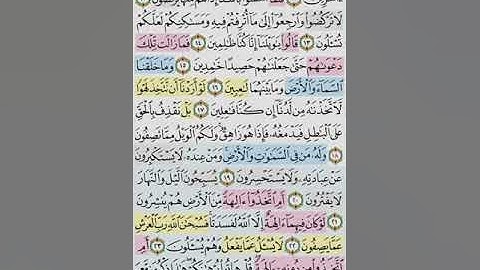 لَا تَرْكُضُوا۟ وَٱرْجِعُوٓا۟ إِلَىٰ مَآ أُتْرِفْتُمْ فِيهِ وَمَسَٰكِنِكُمْ لَعَلَّكُمْ
تُسْـَٔلُونَ ١٣ قَالُوا۟ يَٰوَيْلَنَآ إِنَّا كُنَّا ظَٰلِمِينَ ١٤ فَمَا زَالَت تِّلْكَ
دَعْوَىٰهُمْ حَتَّىٰ جَعَلْنَٰهُمْ حَصِيدًا خَٰمِدِينَ ١٥ وَمَا خَلَقْنَا
ٱلسَّمَآءَ وَٱلْأَرْضَ وَمَا بَيْنَهُمَا لَٰعِبِينَ ١٦ لَوْ أَرَدْنَآ أَن نَّتَّخِذَ لَهْوًا
لَّٱتَّخَذْنَٰهُ مِن لَّدُنَّآ إِن كُنَّا فَٰعِلِينَ ١٧ بَلْ نَقْذِفُ بِٱلْحَقِّ
عَلَى ٱلْبَٰطِلِ فَيَدْمَغُهُۥ فَإِذَا هُوَ زَاهِقٌ وَلَكُمُ ٱلْوَيْلُ مِمَّا تَصِفُونَ
١٨ وَلَهُۥ مَن فِى ٱلسَّمَٰوَٰتِ وَٱلْأَرْضِ وَمَنْ عِندَهُۥ لَا يَسْتَكْبِرُونَ
عَنْ عِبَادَتِهِۦ وَلَا يَسْتَحْسِرُونَ ١٩ يُسَبِّحُونَ ٱلَّيْلَ وَٱلنَّهَارَ
لَا يَفْتُرُونَ ٢٠ أَمِ ٱتَّخَذُوٓا۟ ءَالِهَةً مِّنَ ٱلْأَرْضِ هُمْ يُنشِرُونَ
٢١ لَوْ كَانَ فِيهِمَآ ءَالِهَةٌ إِلَّا ٱللَّهُ لَفَسَدَتَا فَسُبْحَٰنَ ٱللَّهِ رَبِّ ٱلْعَرْشِ
عَمَّا يَصِفُونَ ٢٢ لَا يُسْـَٔلُ عَمَّا يَفْعَلُ وَهُمْ يُسْـَٔلُونَ ٢٣ أَمِ